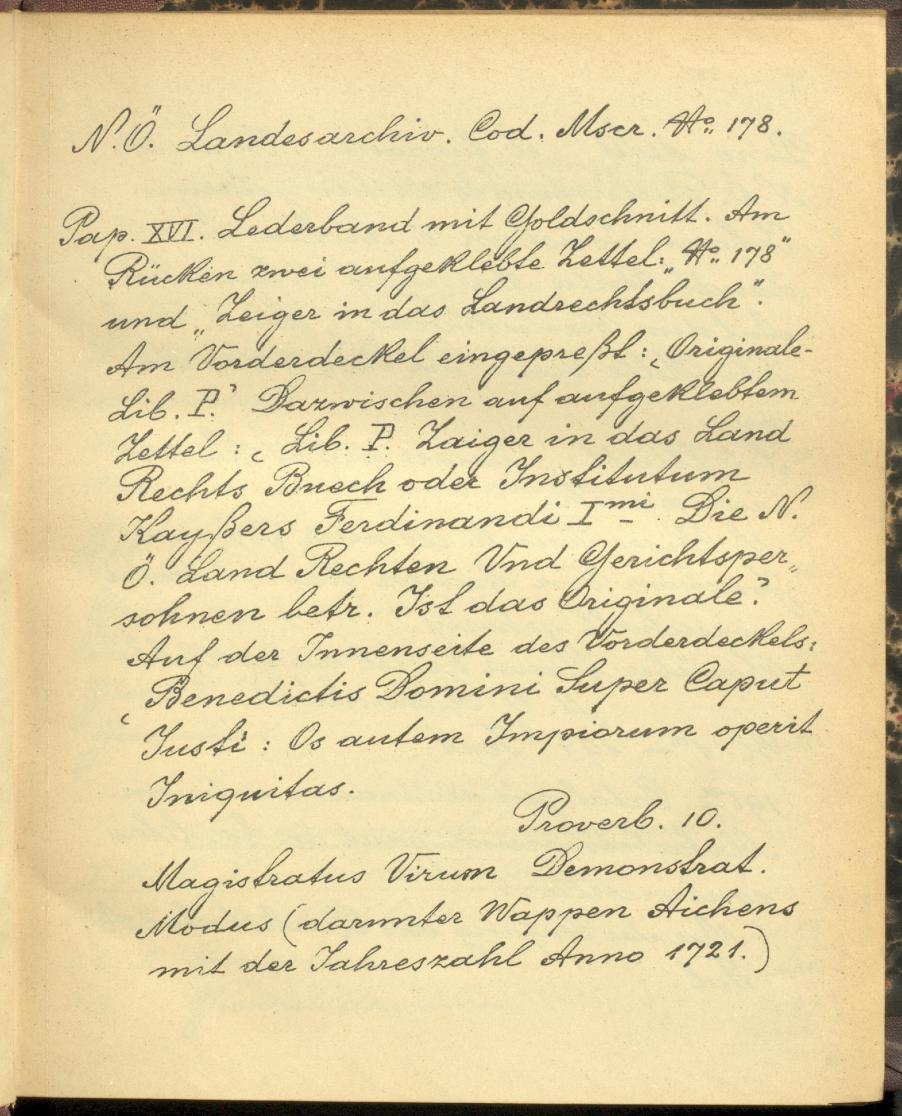 N.Ö. Landesarchiv. Cod. Mscr. No. 178.
Pap. XVI. Lederband mit Goldschnitt. Am
Rücken zwei aufgeklebte Zettel: „No. 178"
und „Zeiger in das Landrechtsbuch".
Am Vorderdeckel eingepreßt: ‚Originale-
Lib. P.' Dazwischen auf aufgeklebtem
Zettel: ‚Lib. P. Zaiger in das Land
Rechts Buech oder Institutum
Kayßers Ferdinandi Imi. Die N.
Ö. Land Rechten Vnd Gerichtsper„
sohnen betr. Ist das Originale.'
Auf der Innenseite des Vorderdeckels:
‚Benedictis Domini Super Caput
Iusti: Os autem Impiorum operit
Iniquitas.
Proverb. 10.
Magistratus Virum Demonstrat.
Modus (darunter Wappen Aichens
mit der Jahreszahl Anno 1721.)